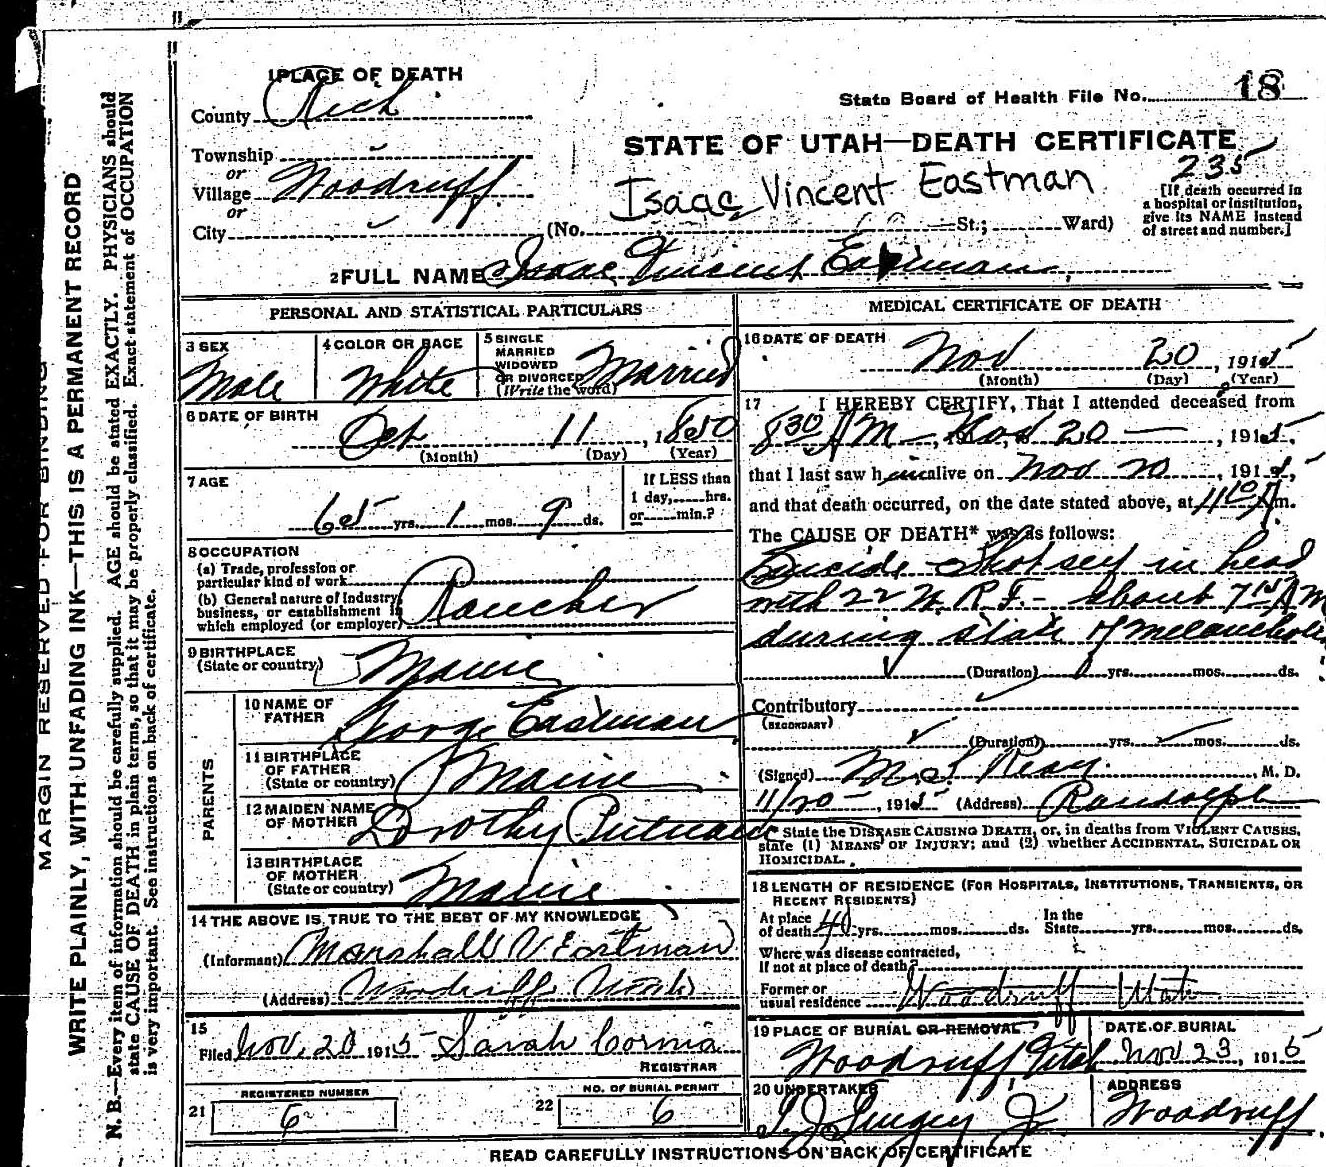 1 PLACE OF DEATH
County Rich
State Board of Health File No. 18
STATE OF UTAH—DEATH CERTIFICATE
235
Township
or
Village Woodruff
or
City
Isaac Vincent Eastman
(No. St.; Ward)
[If death occurred in
a hospital or institution,
give its NAME instead
of street and number.]
2 FULL NAME Isaac Vincent Eastman
PERSONAL AND STATISTICAL PARTICULARS
3 SEX
Male
4 COLOR OR RACE
White
5 SINGLE
MARRIED
WIDOWED
OR DIVORCED
(Write the word)
Married
6 DATE OF BIRTH
Oct 11, 1850
(Month) (Day) (Year)
7 AGE
65 yrs. 1 mos. 9 ds.
If LESS than
1 day, hrs.
or min.?
8 OCCUPATION
(a) Trade, profession or
particular kind of work
(b) General nature of Industry,
business, or establishment in
which employed (or employer)
Rancher
9 BIRTHPLACE
(State or country)
Maine
PARENTS
10 NAME OF
FATHER
George Eastman
11 BIRTHPLACE
OF FATHER
(State or country)
Maine
12 MAIDEN NAME
OF MOTHER
Dorothy Putnam
13 BIRTHPLACE
OF MOTHER
(State or country)
Maine
14 THE ABOVE IS TRUE TO THE BEST OF MY KNOWLEDGE
(Informant) Marshall V Eastman
(Address) Woodruff Utah
15
Filed Nov. 20 1915 Sarah Cornia
REGISTRAR
REGISTERED NUMBER
21 6
NO. OF BURIAL PERMIT
22 6
MEDICAL CERTIFICATE OF DEATH
16 DATE OF DEATH
Nov 20, 1915
(Month) (Day) (Year)
17 I HEREBY CERTIFY, That I attended deceased from
8 30 AM — Nov 20 —, 1915,
that I last saw him alive on Nov 20, 1915,
and that death occurred, on the date stated above, at 11 10 A m.
The CAUSE OF DEATH* was as follows:
Suicide Shot self in head
with 22 R. F. - about 7 15 AM
during state of melancholia
(Duration) yrs. mos. ds.
Contributory
(SECONDARY)
(Duration) yrs. mos. ds.
(Signed) M. S. Reay, M. D.
11/20, 1915 (Address) Randolph
* State the DISEASE CAUSING DEATH, or, in deaths from VIOLENT CAUSES,
state (1) MEANS OF INJURY; and (2) whether ACCIDENTAL, SUICIDAL OR
HOMICIDAL.
18 LENGTH OF RESIDENCE (FOR HOSPITALS, INSTITUTIONS, TRANSIENTS, OR
RECENT RESIDENTS)
At place
of death 40 yrs. mos. ds.
In the
State yrs. mos. ds.
Where was disease contracted,
If not at place of death?
Former or
usual residence Woodruff Utah
19 PLACE OF BURIAL OR REMOVAL
Woodruff Utah
DATE OF BURIAL
Nov 23, 1915
20 UNDERTAKER
Jr
ADDRESS
Woodruff
READ CAREFULLY INSTRUCTIONS ON BACK OF CERTIFICATE
MARGIN RESERVED FOR BINDING
WRITE PLAINLY, WITH UNFADING INK—THIS IS A PERMANENT RECORD
N. B.—Every item of information should be carefully supplied. AGE should be stated EXACTLY. PHYSICIANS should
state CAUSE OF DEATH in plain terms, so that it may be properly classified. Exact statement of OCCUPATION
is very important. See instructions on back of certificate.